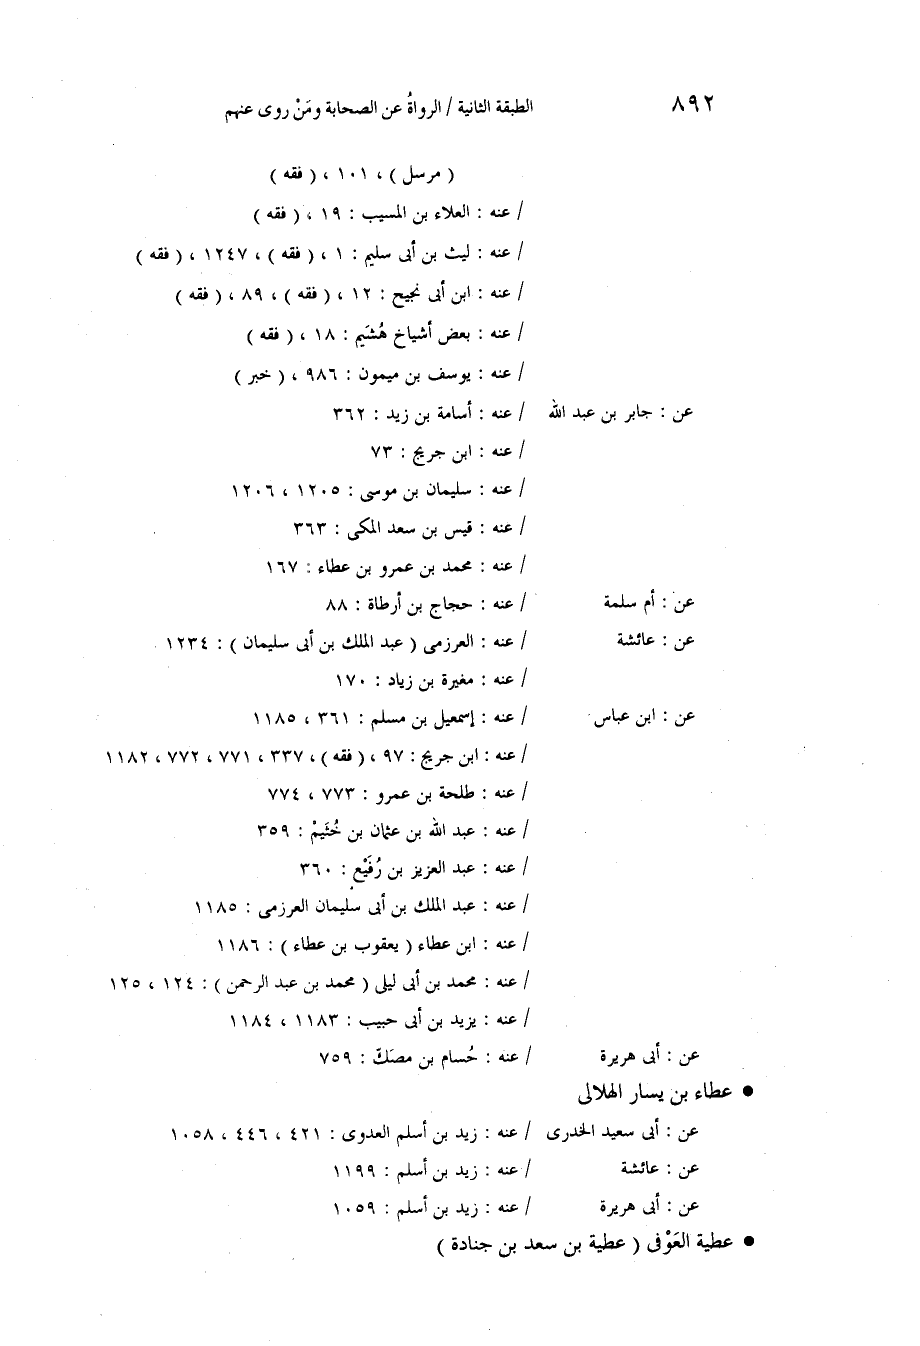 ٨٩٢ الطبقة الثانية / الرواةُ عن الصحابة ومَنْ روى عنهم
( مرسل ) ، ١٠١ ، ( فقه )
/ عنه : العلاء بن المسيب : ١٩ ، ( فقه )
/ عنه : ليث بن أبى سليم : ١ ، ( فقه ) ، ١٢٤٧ ، ( فقه )
/ عنه : ابن أبى نجيح : ١٢ ، ( فقه ) ، ٨٩ ، ( فقه )
/ عنه : بعض أشياخ هُشَيم : ١٨ ، ( فقه )
/ عنه : يوسف بن ميمون : ٩٨٦ ، ( خبر )
عن : جابر بن عبد الله / عنه : أسامة بن زيد : ٣٦٢
/ عنه : ابن جريج : ٧٣
/ عنه : سليمان بن موسى : ١٢٠٥ ، ١٢٠٦
/ عنه : قيس بن سعد المكى : ٣٦٣
/ عنه : محمد بن عمرو بن عطاء : ١٦٧
عن : أم سلمة / عنه : حجاج بن أرطاة : ٨٨
عن : عائشة / عنه : العرزمى ( عبد الملك بن أبى سليمان ) : ١٢٣٤
/ عنه : مغيرة بن زياد : ١٧٠
عن : ابن عباس / عنه : إسمعيل بن مسلم : ٣٦١ ، ١١٨٥
/ عنه : ابن جريج : ٩٧ ، ( فقه ) ، ٣٣٧ ، ٧٧١ ، ٧٧٢ ، ١١٨٢
/ عنه : طلحة بن عمرو : ٧٧٣ ، ٧٧٤
/ عنه : عبد الله بن عثمان بن خُثَيمْ : ٣٥٩
/ عنه : عبد العزيز بن رُفَيْع : ٣٦٠
/ عنه : عبد الملك بن أبى سليمان العرزمى : ١١٨٥
/ عنه : ابن عطاء ( يعقوب بن عطاء ) : ١١٨٦
/ عنه : محمد بن أبى ليلى ( محمد بن عبد الرحمن ) : ١٢٤ ، ١٢٥
/ عنه : يزيد بن أبى حبيب : ١١٨٣ ، ١١٨٤
عن : أبى هريرة / عنه : حُسام بن مصَكّ : ٧٥٩
● عطاء بن يسار الهلالى
عن : أبى سعيد الخدرى / عنه : زيد بن أسلم العدوى : ٤٢١ ، ٤٤٦ ، ١٠٥٨
عن : عائشة / عنه : زيد بن أسلم : ١١٩٩
عن : أبى هريرة / عنه : زيد بن أسلم : ١٠٥٩
● عطية العَوْفى ( عطية بن سعد بن جنادة )